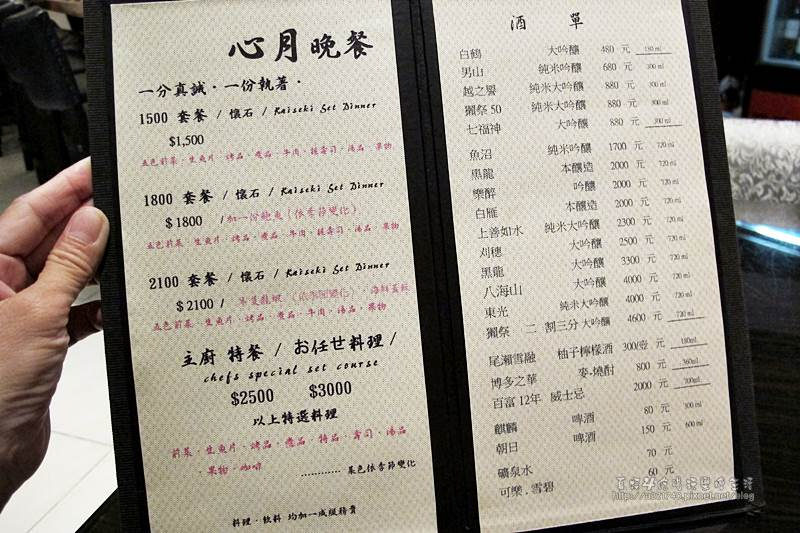 心月晚餐
一分真誠．一份執著．
1500 套餐 / 懷石 / Kaiseki Set Dinner
$1,500
五色前菜．生魚片．烤品．煮品．牛肉．握壽司．湯品．果物
1800 套餐 / 懷石 / Kaiseki Set Dinner
$1800 /加一份鮑魚(依季節變化)
五色前菜．生魚片．烤品．煮品．牛肉．握壽司．湯品．果物
2100 套餐 / 懷石 / Kaiseki Set Dinner
$2100 / 半隻龍蝦 (依季節變化)．海鮮蓋飯
五色前菜．生魚片．烤品．煮品．牛肉．湯品．果物
主廚 特餐 / お任せ料理 /
chefs special set course
$2500 $3000
以上特選料理
前菜．生魚片．烤品．煮品．特品．壽司．湯品
．果物．咖啡
............ 菜色依季節變化
料理．飲料 均加一成服務費
酒 單
白鶴 大吟釀 480 元 180 ml
男山 純米吟釀 680 元 300 ml
越之譽 純米大吟釀 880 元 300 ml
獺祭 50 純米大吟釀 880 元 300 ml
七福神 大吟釀 880 元 300 ml
魚沼 純米吟釀 1700 元 720 ml
黑龍 本釀造 2000 元 720 ml
樂醉 吟釀 2000 元 720 ml
白雁 本釀造 2000 元 720 ml
上善如水 純米大吟釀 2300 元 720 ml
刈穗 大吟釀 2500 元 720 ml
黑龍 大吟釀 3300 元 720 ml
八海山 大吟釀 4000 元 720 ml
東光 純米大吟釀 4000 元 720 ml
獺祭 二 割三分 大吟釀 4600 元 720 ml
尾瀨雪融 柚子檸檬酒 300/壺 元 180ml
博多之華 麥-燒酎 800 元 360ml
百富 12年 威士忌 2000 元 700ml
麒麟 啤酒 80 元 300 ml
朝日 啤酒 150 元 600 ml
礦泉水 70 元
可樂．雪碧 60 元